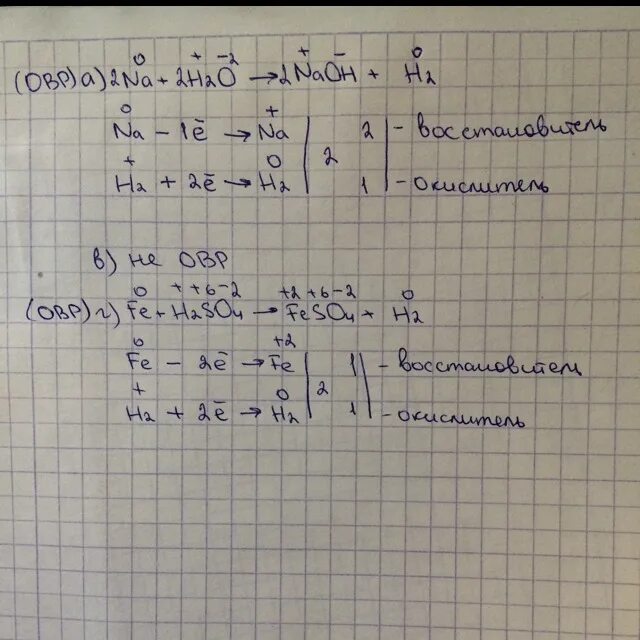 (ОВР) а) 2Na⁰ + 2H₂⁺O⁻² → 2Na⁺OH⁻ + H₂⁰
Na⁰ - 1ē → Na⁺ | 2 | 2 - восстановитель
H₂⁺ + 2ē → H₂⁰ | 1 - окислитель
в) не ОВР
(ОВР) г) Fe⁰ + H₂⁺S⁺⁶O₄⁻² → Fe⁺²S⁺⁶O₄⁻² + H₂⁰
Fe⁰ - 2ē → Fe⁺² | 2 | 1 - восстановитель
H₂⁺ + 2ē → H₂⁰ | 1 - окислитель